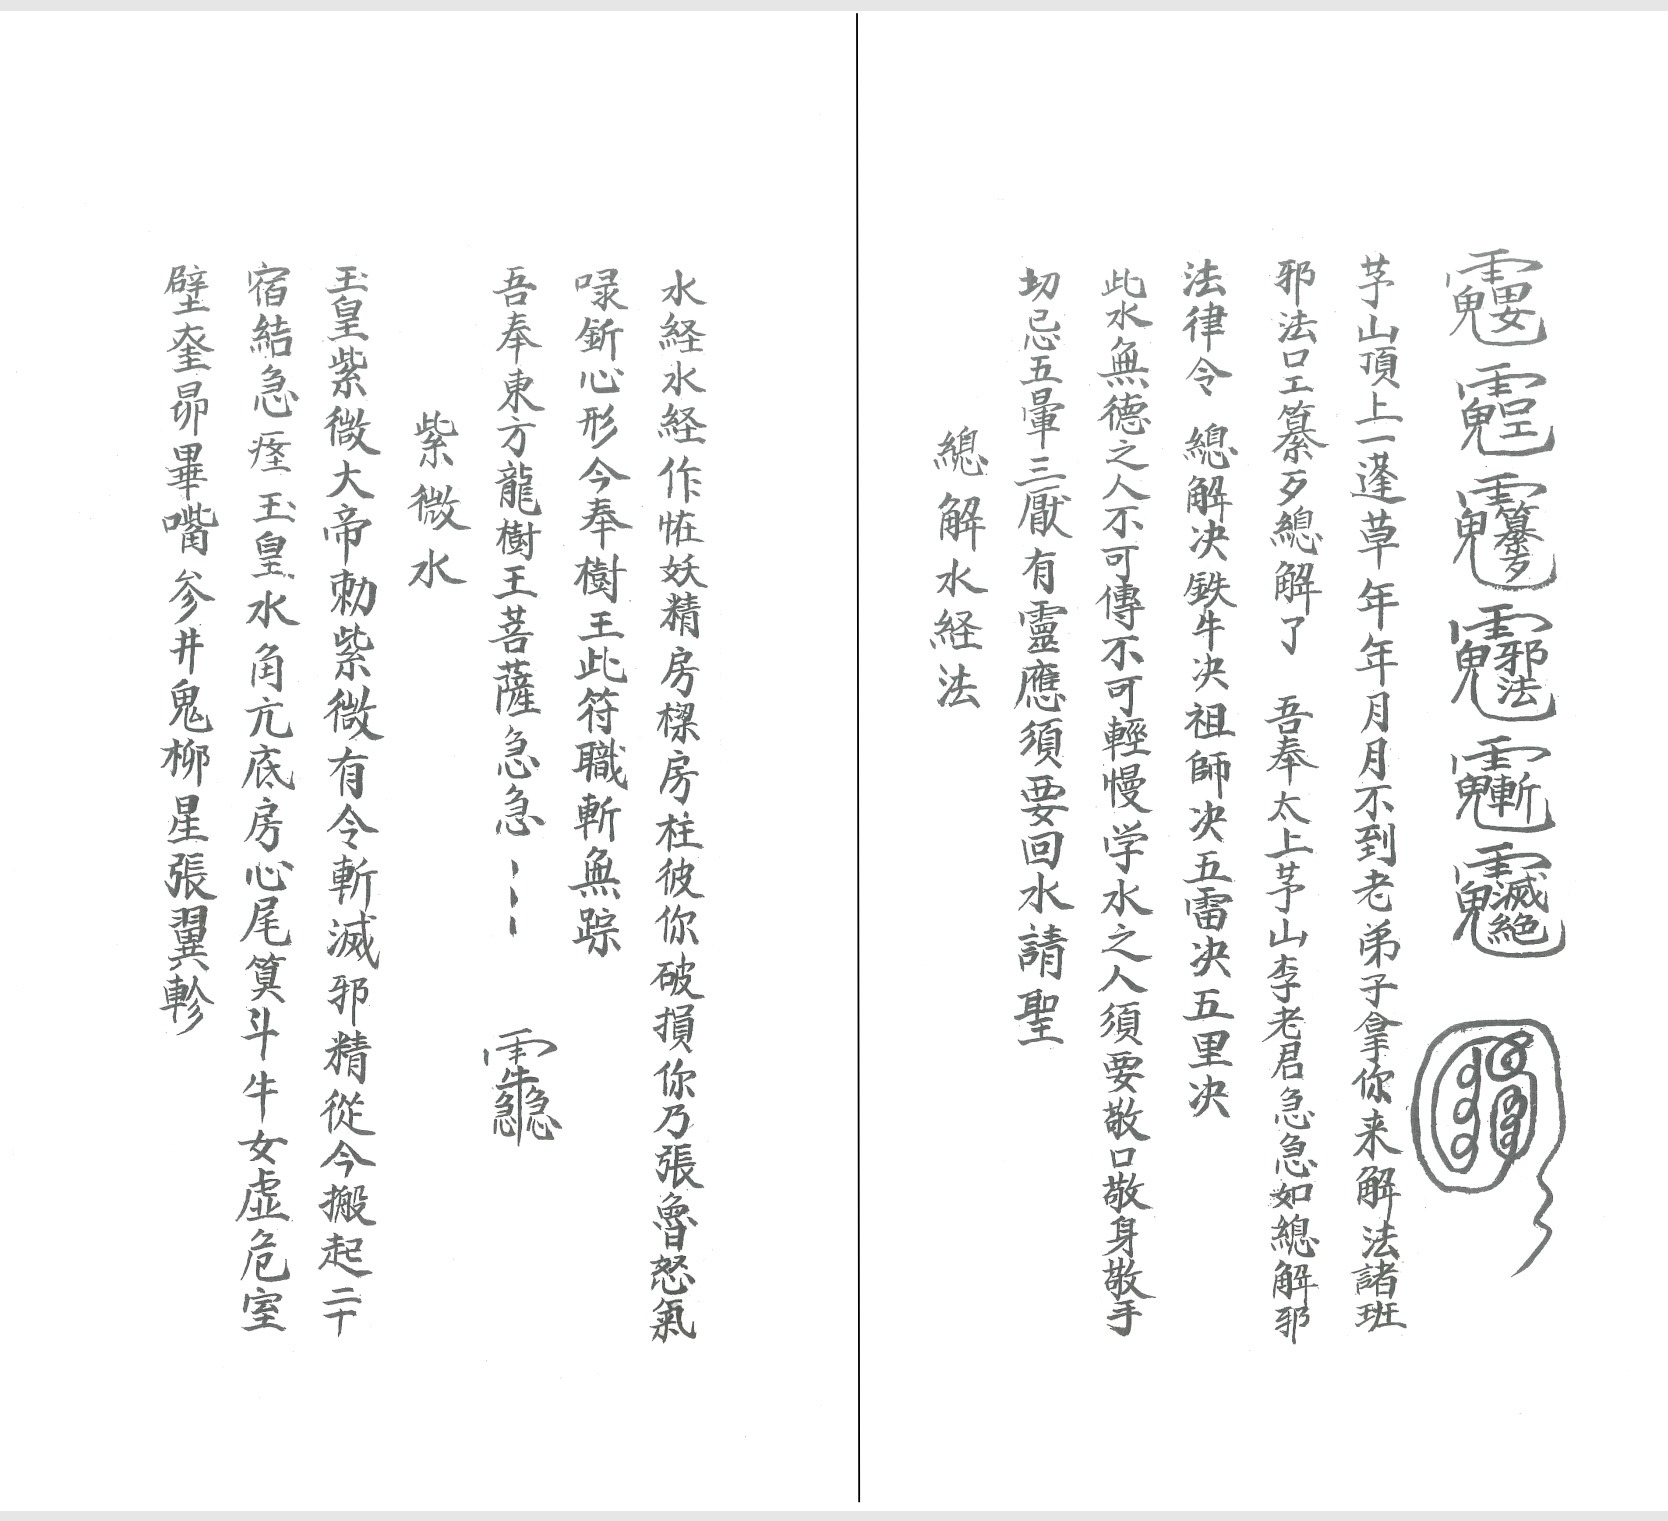 芧山頂上一蓬草年年月月不到老弟子拿你来解法諸班
邪法口工纂歹總解了 吾奉太上茅山李老君急急如總解邪
法律令 總解决鉄牛决祖師决五雷决五里决
此水無德之人不可傳不可輕慢学水之人須要敬口敬身敬手
切忌五暈三厭有靈應須要回水請聖
總解水経法
水経水経作恠妖精房樑房柱彼你破損你乃張魯怒氣
㖨斩心形今奉樹王此符職斬無踪
吾奉東方龍樹王菩薩急急
紫微水
玉皇紫微大帝勅紫微有令斬滅邪精從今搬起二十
宿結急痓玉皇水角亢底房心尾箕斗牛女虛危室
壁奎昴畢嘴参井鬼柳星張翼軫